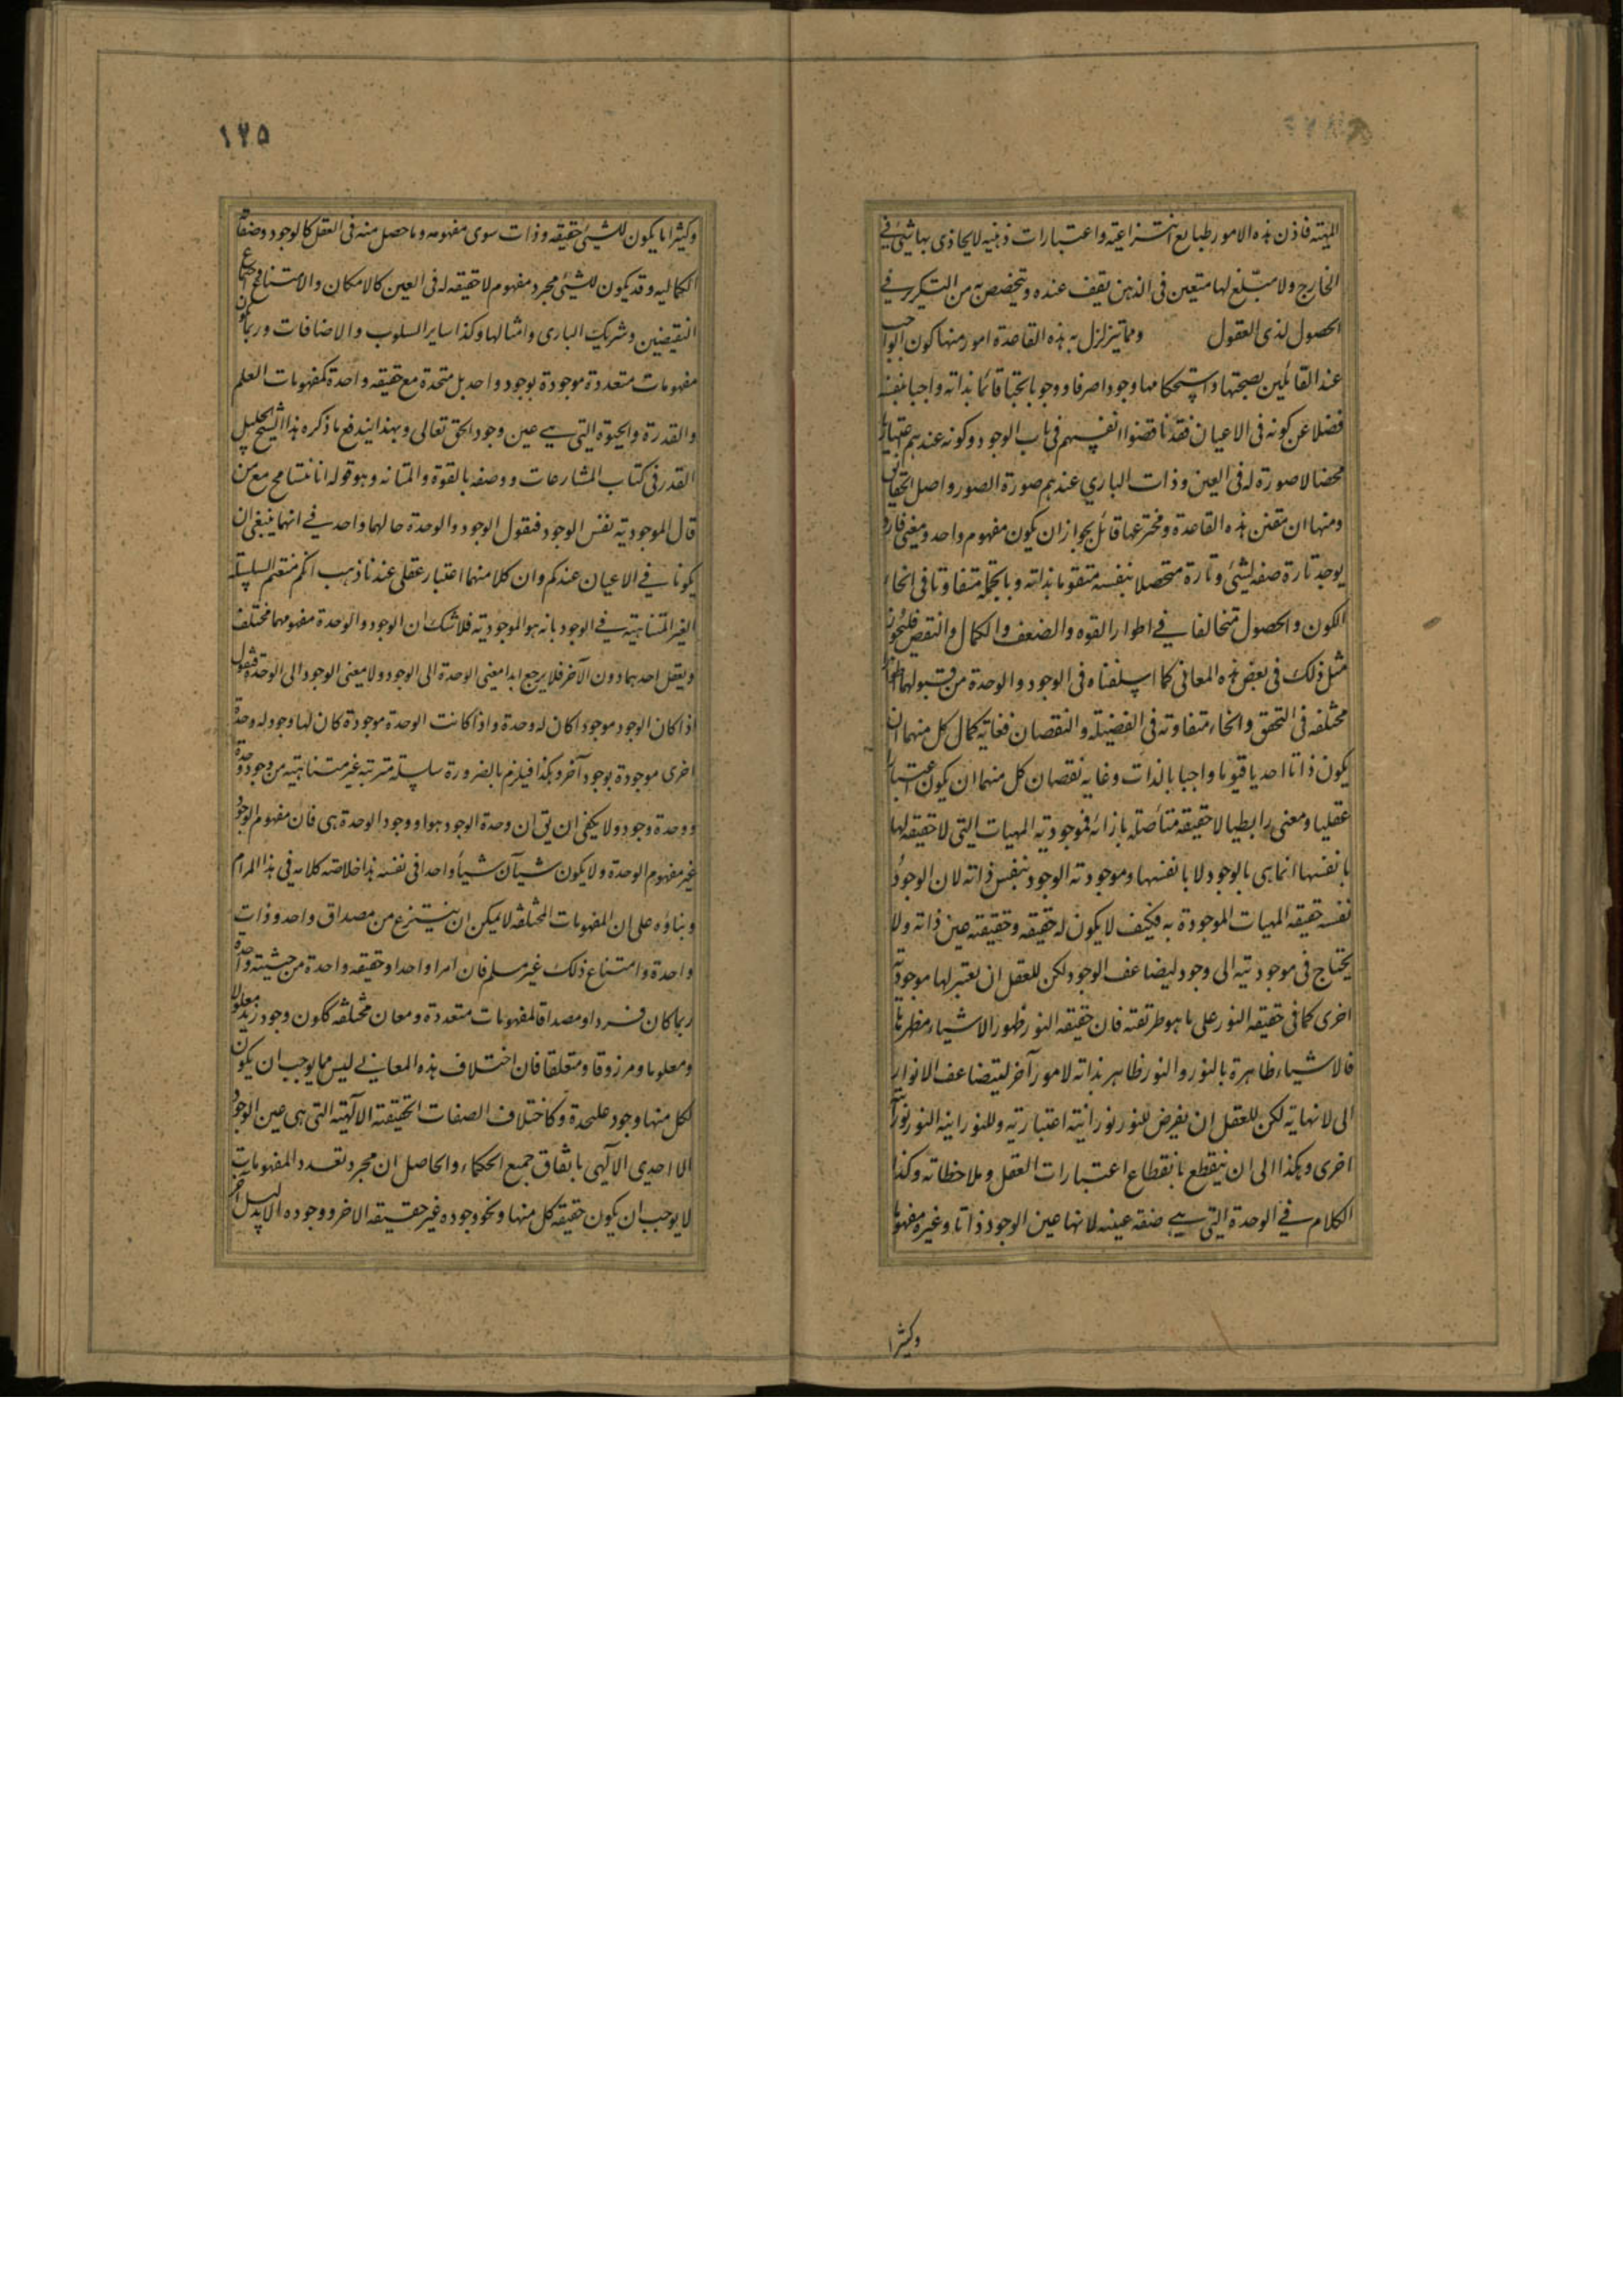 المهيه فاذن هذه الامور طبايع انتزاعيه واعتبارات ذهنيه لا يحاذى بها شئ في
الخارج ولا مبلغ لها متعين فى الذهن يقف عنده ويتخصص به من التكرر في
الحصول لذى العقول ومما يتزلزل به هذه القاعدة امور منها كون الواجب
عند القائلين بصحتها واستحكامها وجودا صرفا ووجوبا بحتا قائما بذاته واجبا بنفسه
فضلا عن كونه فى الاعيان فقد ناقضوا انفسهم فى باب الوجود وكونه عندهم اعتباريا
محضا لا صورة له فى العين وذات الباري عندهم صورة الصور واصل الحقايق
ومنها ان مقنن هذه القاعدة ومخترعها قائل بجواز ان يكون مفهوم واحد ومعنى فارد
يوجد تارة صفه لشئ وتارة متحصلا بنفسه متقوما بذاته وبالجمله متفاوتا فى انحاء
الكون والحصول متخالفا في اطوار القوه والضعف والكمال والنقص فليجوز
مثل ذلك فى بعض هذه المعانى كما اسلفناه فى الوجود والوحدة من قبولهما اطوارا
مختلفه فى التحقق وانحاء متفاوته فى الفضيله والنقصان فغاية كمال كل منهما ان
يكون ذاتا احديا قيوما واجبا بالذات وغاية نقصان كل منهما ان يكون اعتبارا
عقليا ومعنى رابطيا لا حقيقه متأصله بازائه فموجوديه المهيات التى لا حقيقه لها
بانفسها انما هى بالوجود لا بانفسها وموجوديه الوجود بنفس ذاته لان الوجود
نفسه حقيقه المهيات الموجودة به فكيف لا يكون له حقيقه وحقيقته عين ذاته ولا
يحتاج فى موجوديته الى وجود ليضاعف الوجود لكن للعقل ان يعتبر لها موجوديه
اخرى كما فى حقيقه النور على ما هو طريقته فان حقيقه النور ظهور الاشياء ومظهريتها
فالاشياء ظاهرة بالنور والنور ظاهر بذاته لا مور آخر ليتضاعف الانوار
الى لانهايه لكن للعقل ان يفرض للنور نورانيته اعتباريه وللنورانيه النور نورانيه
اخرى وهكذا الى ان ينقطع بانقطاع اعتبارات العقل وملاحظاته وكذا
الكلام في الوحدة التى هي صفه عينه لانها عين الوجود ذاتا وغيره مفهوما
وكثيرا
١٢٥
وكثيرا ما يكون للشئ حقيقه وذات سوى مفهومه وما حصل منه فى العقل كالوجود وصفاته
الكماليه وقد يكون للشئ مجرد مفهوم لا حقيقه له فى العين كالامكان والامتناع واجتماع
النقيضين وشريك البارى وامثالها وكذا ساير السلوب والاضافات وربما يكون
مفهومات متعددة موجودة بوجود واحد بل متحدة مع حقيقه واحدة كمفهومات العلم
والقدرة والحيوة التى هي عين وجود الحق تعالى وبهذا يندفع ما ذكره هذا الشيخ الجليل
القدر فى كتاب المشارعات ووصفه بالقوة والمتانه وهو قوله انا نتسامح مع من
قال الموجوديه نفس الوجود فنقول الوجود والوحدة حالهما واحد في انهما ينبغى ان
يكونا في الاعيان عندكم وان كلا منهما اعتبار عقلى عندنا ذهب انكم منعتم السلسله
الغير المتناهيه في الوجود بانه هو الموجوديه فلا شك ان الوجود والوحدة مفهومهما مختلف
ويعقل احدهما دون الآخر فلا يرجع ابدا معنى الوحدة الى الوجود ولا معنى الوجود الى الوحدة فنقول
اذا كان الوجود موجودا كان له وحدة واذا كانت الوحدة موجودة كان لها وجود له وحدة
اخرى موجودة بوجود آخر وهكذا فيلزم بالضرورة سلسله مترتبه غير متناهيه من وجود وحدة
ووحدة وجود ولا يكفى ان يق ان وحدة الوجود هو او وجود الوحدة هى فان مفهوم الوجود
غير مفهوم الوحدة ولا يكون شيآن شيأ واحدا فى نفسه هذا خلاصه كلامه فى هذا المرام
وبناؤه على ان المفهومات المختلفه لا يمكن ان ينتزع من مصداق واحد وذات
واحدة وامتناع ذلك غير مسلم فان امرا واحدا وحقيقه واحدة من حيثيته واحدة
ربما كان فردا ومصداقا لمفهومات متعددة ومعان مختلفه ككون وجود زيد معلولا
ومعلوما ومرزوقا ومتعلقا فان اختلاف هذه المعاني ليس مما يوجب ان يكون
لكل منها وجود عليحدة وكاختلاف الصفات الحقيقه الآلهيه التى هى عين الوجود
الاحدى الآلهى باتفاق جميع الحكماء والحاصل ان مجرد تعدد المفهومات
لا يوجب ان يكون حقيقه كل منها ونحو وجوده غير حقيقه الاخر ووجوده الا بدليل آخر